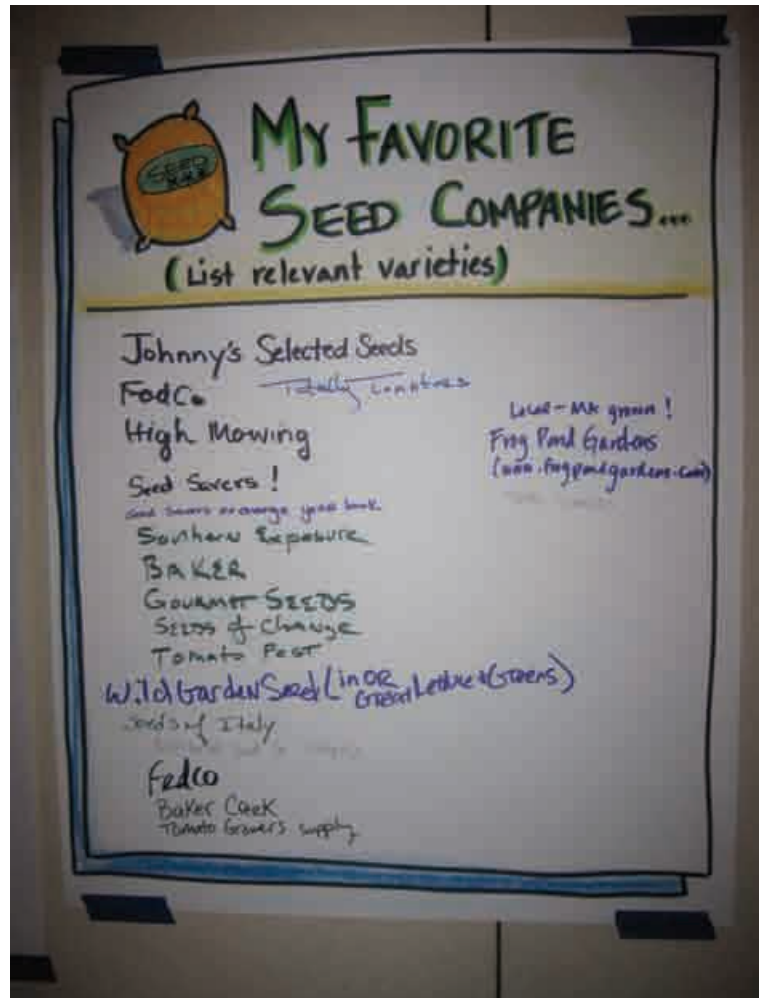 SEED
MY FAVORITE
SEED COMPANIES...
(List relevant varieties)
Johnny's Selected Seeds
FedCo Totally Tomatoes
High Mowing
Seed Savers!
seed savers exchange year book
Southern Exposure
BAKER
GOURMET SEEDS
SEEDS of Change
Tomato FEST
Wild Garden Seed (in OR Great Lettuce & Greens)
Seeds of Italy
Fedco
Baker Creek
Tomato Growers supply
Local - grown!
Frog Pond Gardens
(www.frogpondgardens.com)